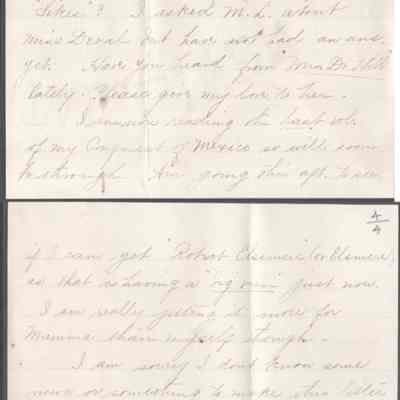 "Sikes"? I asked M. L. about
Miss Deval but have not had an ans.
yet. Have you heard from "Mrs. Dr. Hill"
lately. Please give my love to her.
I am now reading the last vol.
of my Conquest of Mexico so will soon
be through. Am going this aft. to see
4/4
if I can get "Robert Elsmeir" (or Elsmere)
as that is having a "big run" just now.
I am really getting it more for
Mamma than myself though.
I am sorry I dont know some
news or something to make this letter